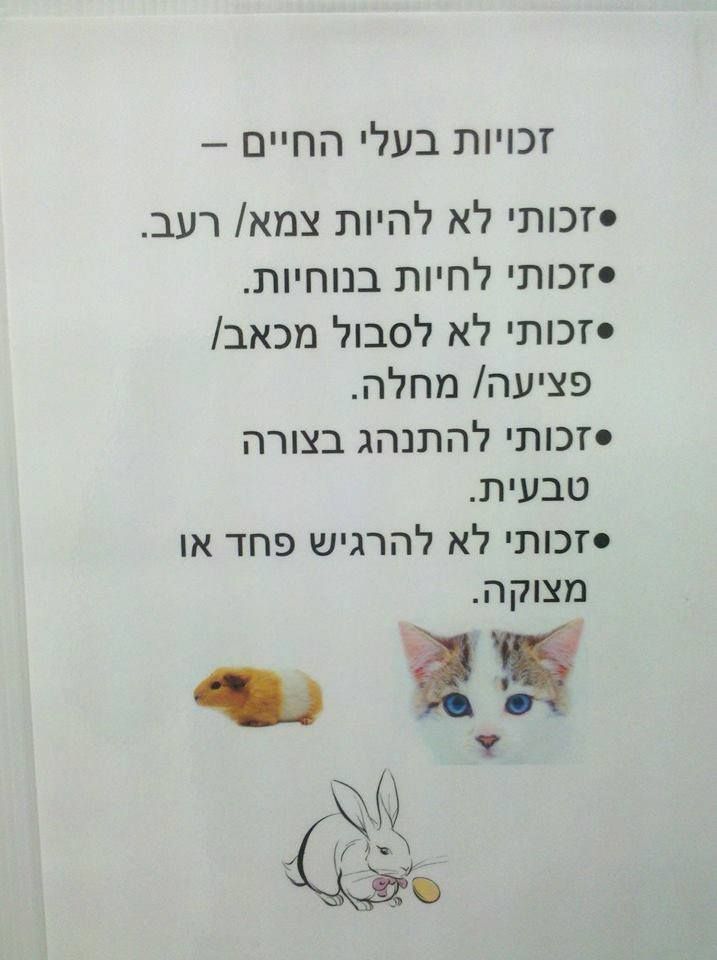 זכויות בעלי החיים –
•זכותי לא להיות צמא/ רעב.
•זכותי לחיות בנוחיות.
•זכותי לא לסבול מכאב/
פציעה/ מחלה.
•זכותי להתנהג בצורה
טבעית.
•זכותי לא להרגיש פחד או
מצוקה.